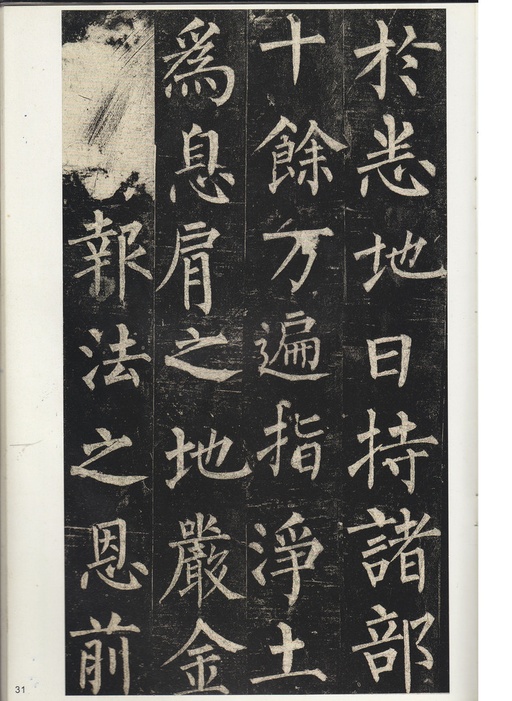 於悉地日持諸部
十餘万遍指淨土
為息肩之地嚴金
報法之恩前
31